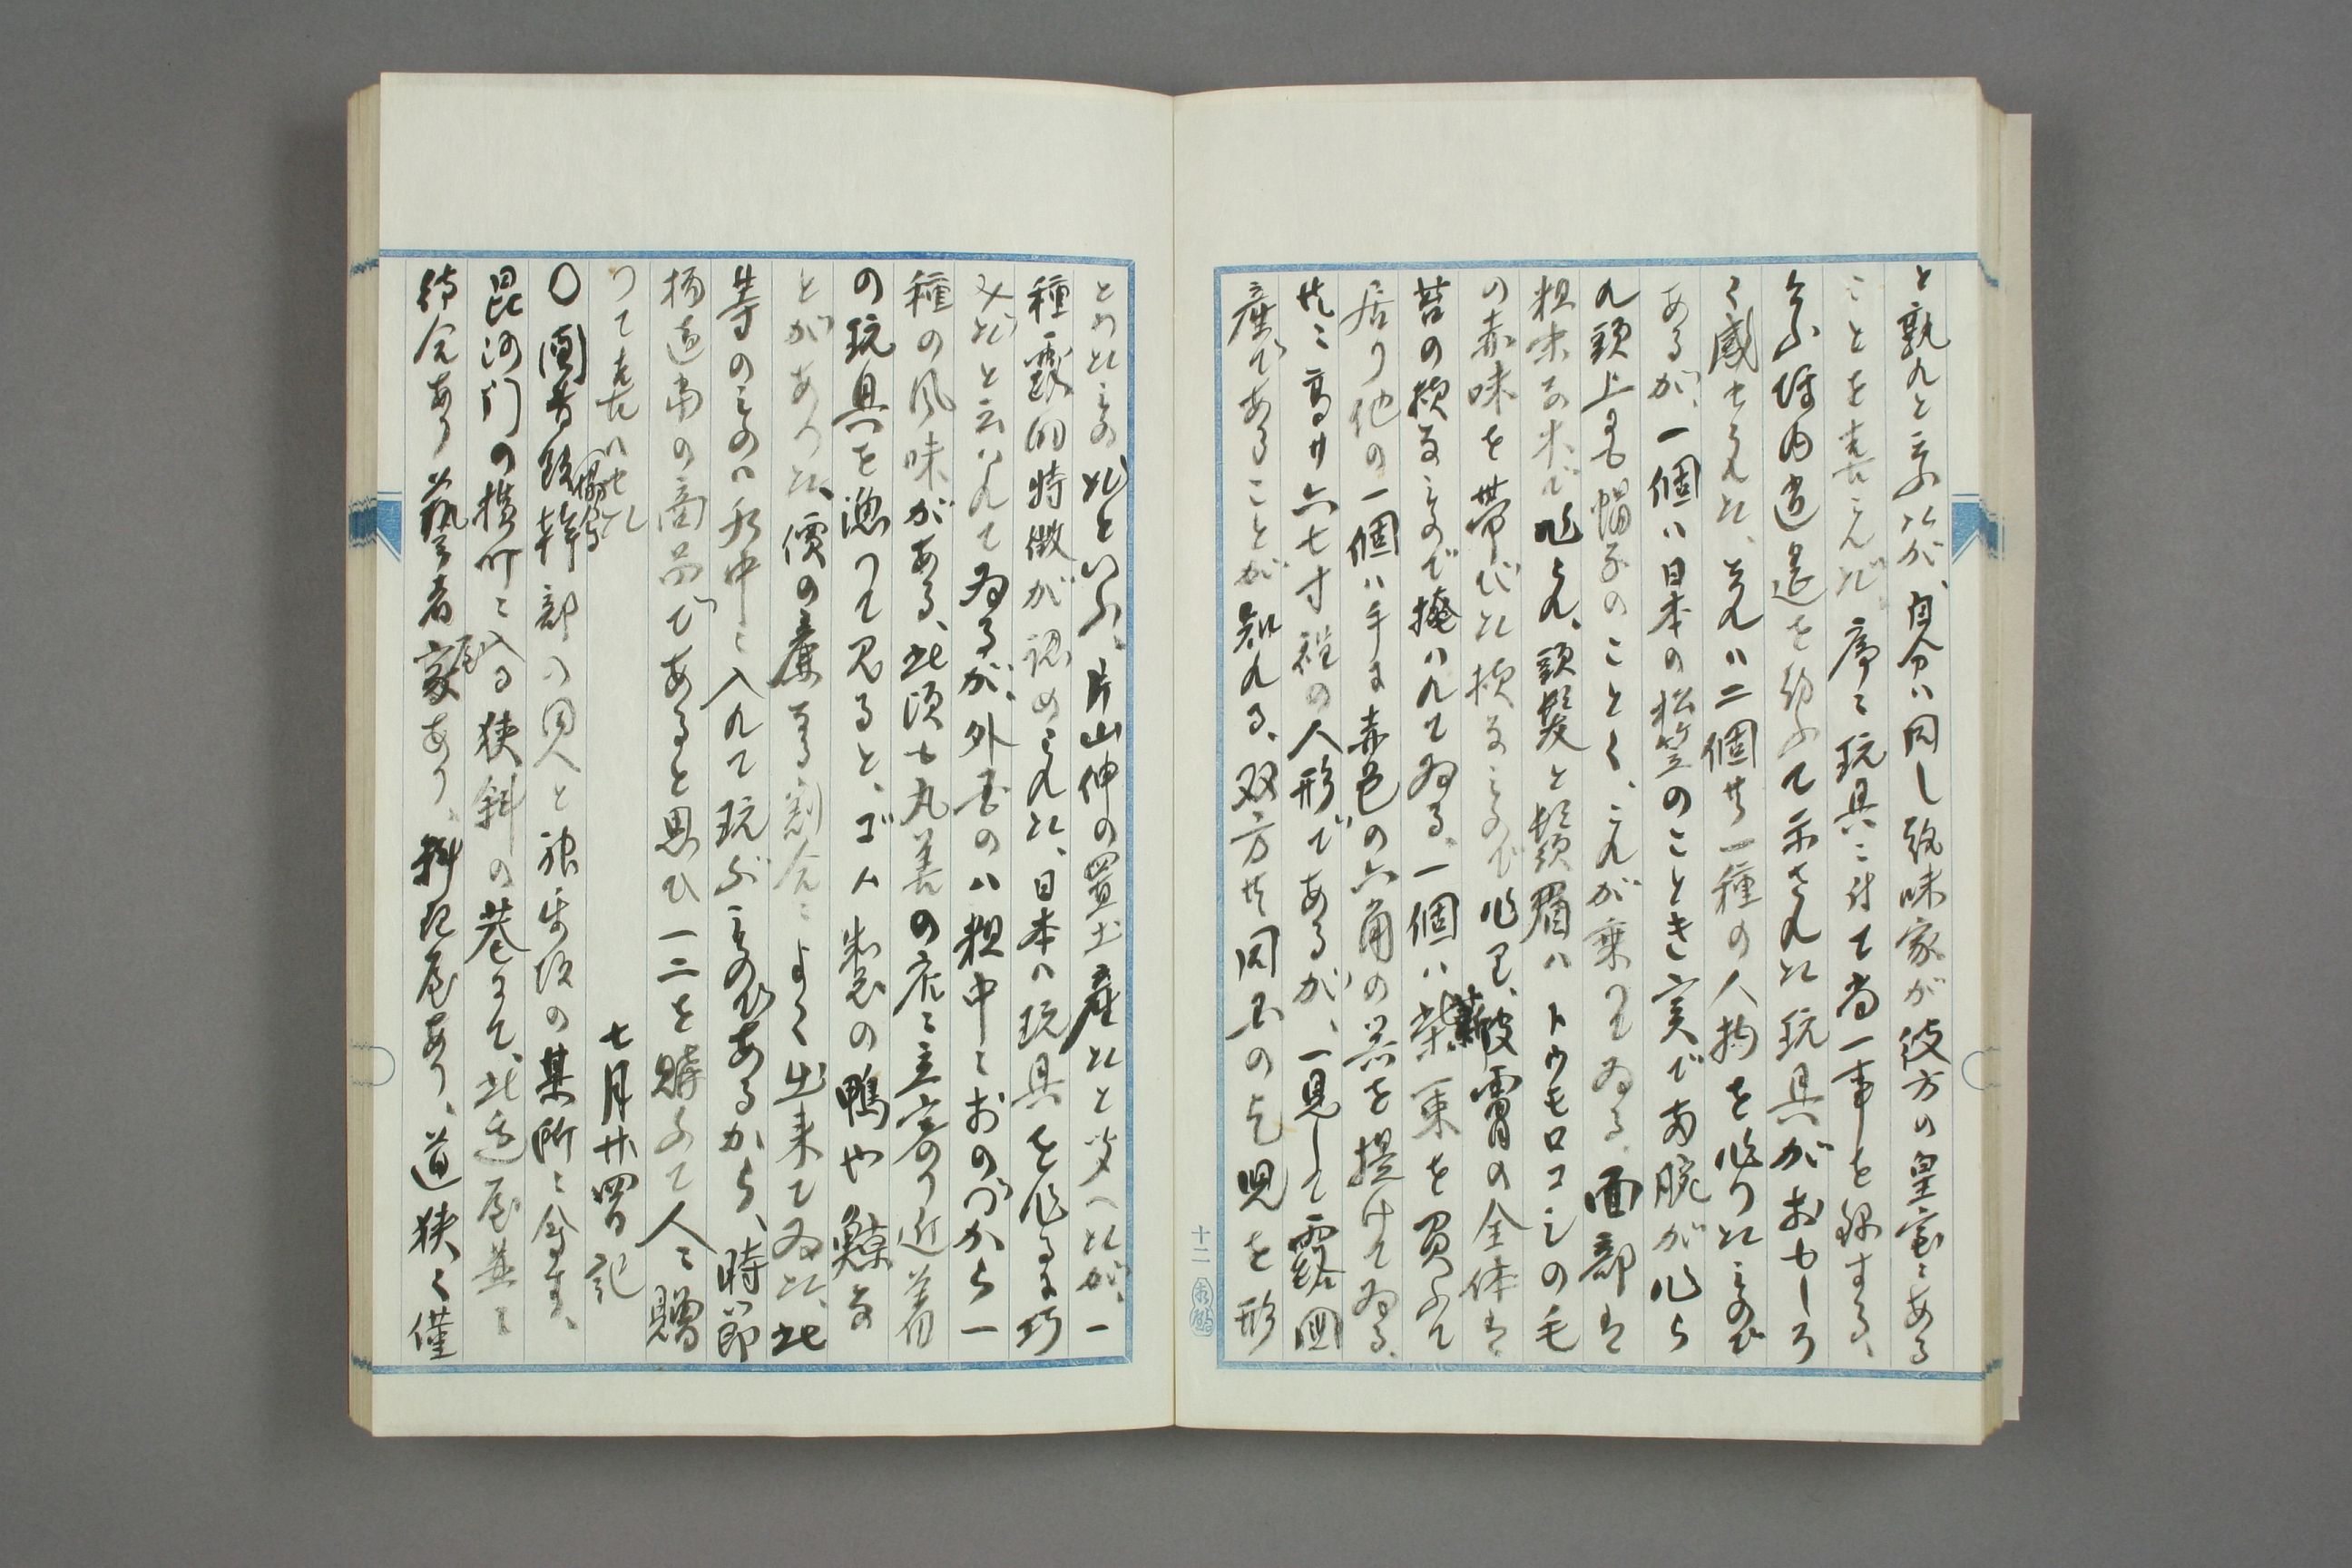 と熟れと云ふが、自分ハ同し趣味家が彼方の皇室ニある
ことを喜こんだ。序ニ玩具ニ付て尚一事を録する、
今ふ坪内逍遥を訪ふて示された玩具がおもしろ
く感せられた、それハ二個共一種の人物を作つたもので
あるが、一個ハ日本の松笠のことき実であ腕が作ら
れ頭上にも帽子のことく、これが乗つてゐる、面部は
粗末な木で作られ、頭髪と鬚眉ハトウモロコシの毛
の赤味を帯びた様なもので作り、被膚の全体は
苔の様なもので掩ハれてゐる、一個ハ柴束を負ふて
居り他の一個ハ手に赤色の六角の器を提けてゐる、
共ニ高サ六七寸程の人形であるが、一見して露国
産であることが知れる、双方共同国の乞児を形
とつたもの だといふ、片山伸の置土産だと笑へたが、一
種露的特徴が認められた、日本ハ玩具を作るに巧
みだと云ハれてゐるが、外国のハ粗中ニおのづから一
種の風味がある、此頃も丸善の店ニ立寄り近着
の玩具を漁つて見ると、ゴム製の鴨や鯨な
とがあつた、價の廉なる割合ニよく出来てゐた、此
等のものハ水中ニ入れて玩ぶものであるから、時節
柄適当の商品であると思ひ一二を購ふて人ニ贈
つて喜ハせた 七月廿四日記
〇 幹部の同人と神楽坂の某所ニ会す、
毘沙門の横町ニ入る狭斜の巷にて、此辺屋並ニ
待合あり芸者屋家あり、料理屋あり、道狭く僅
十二